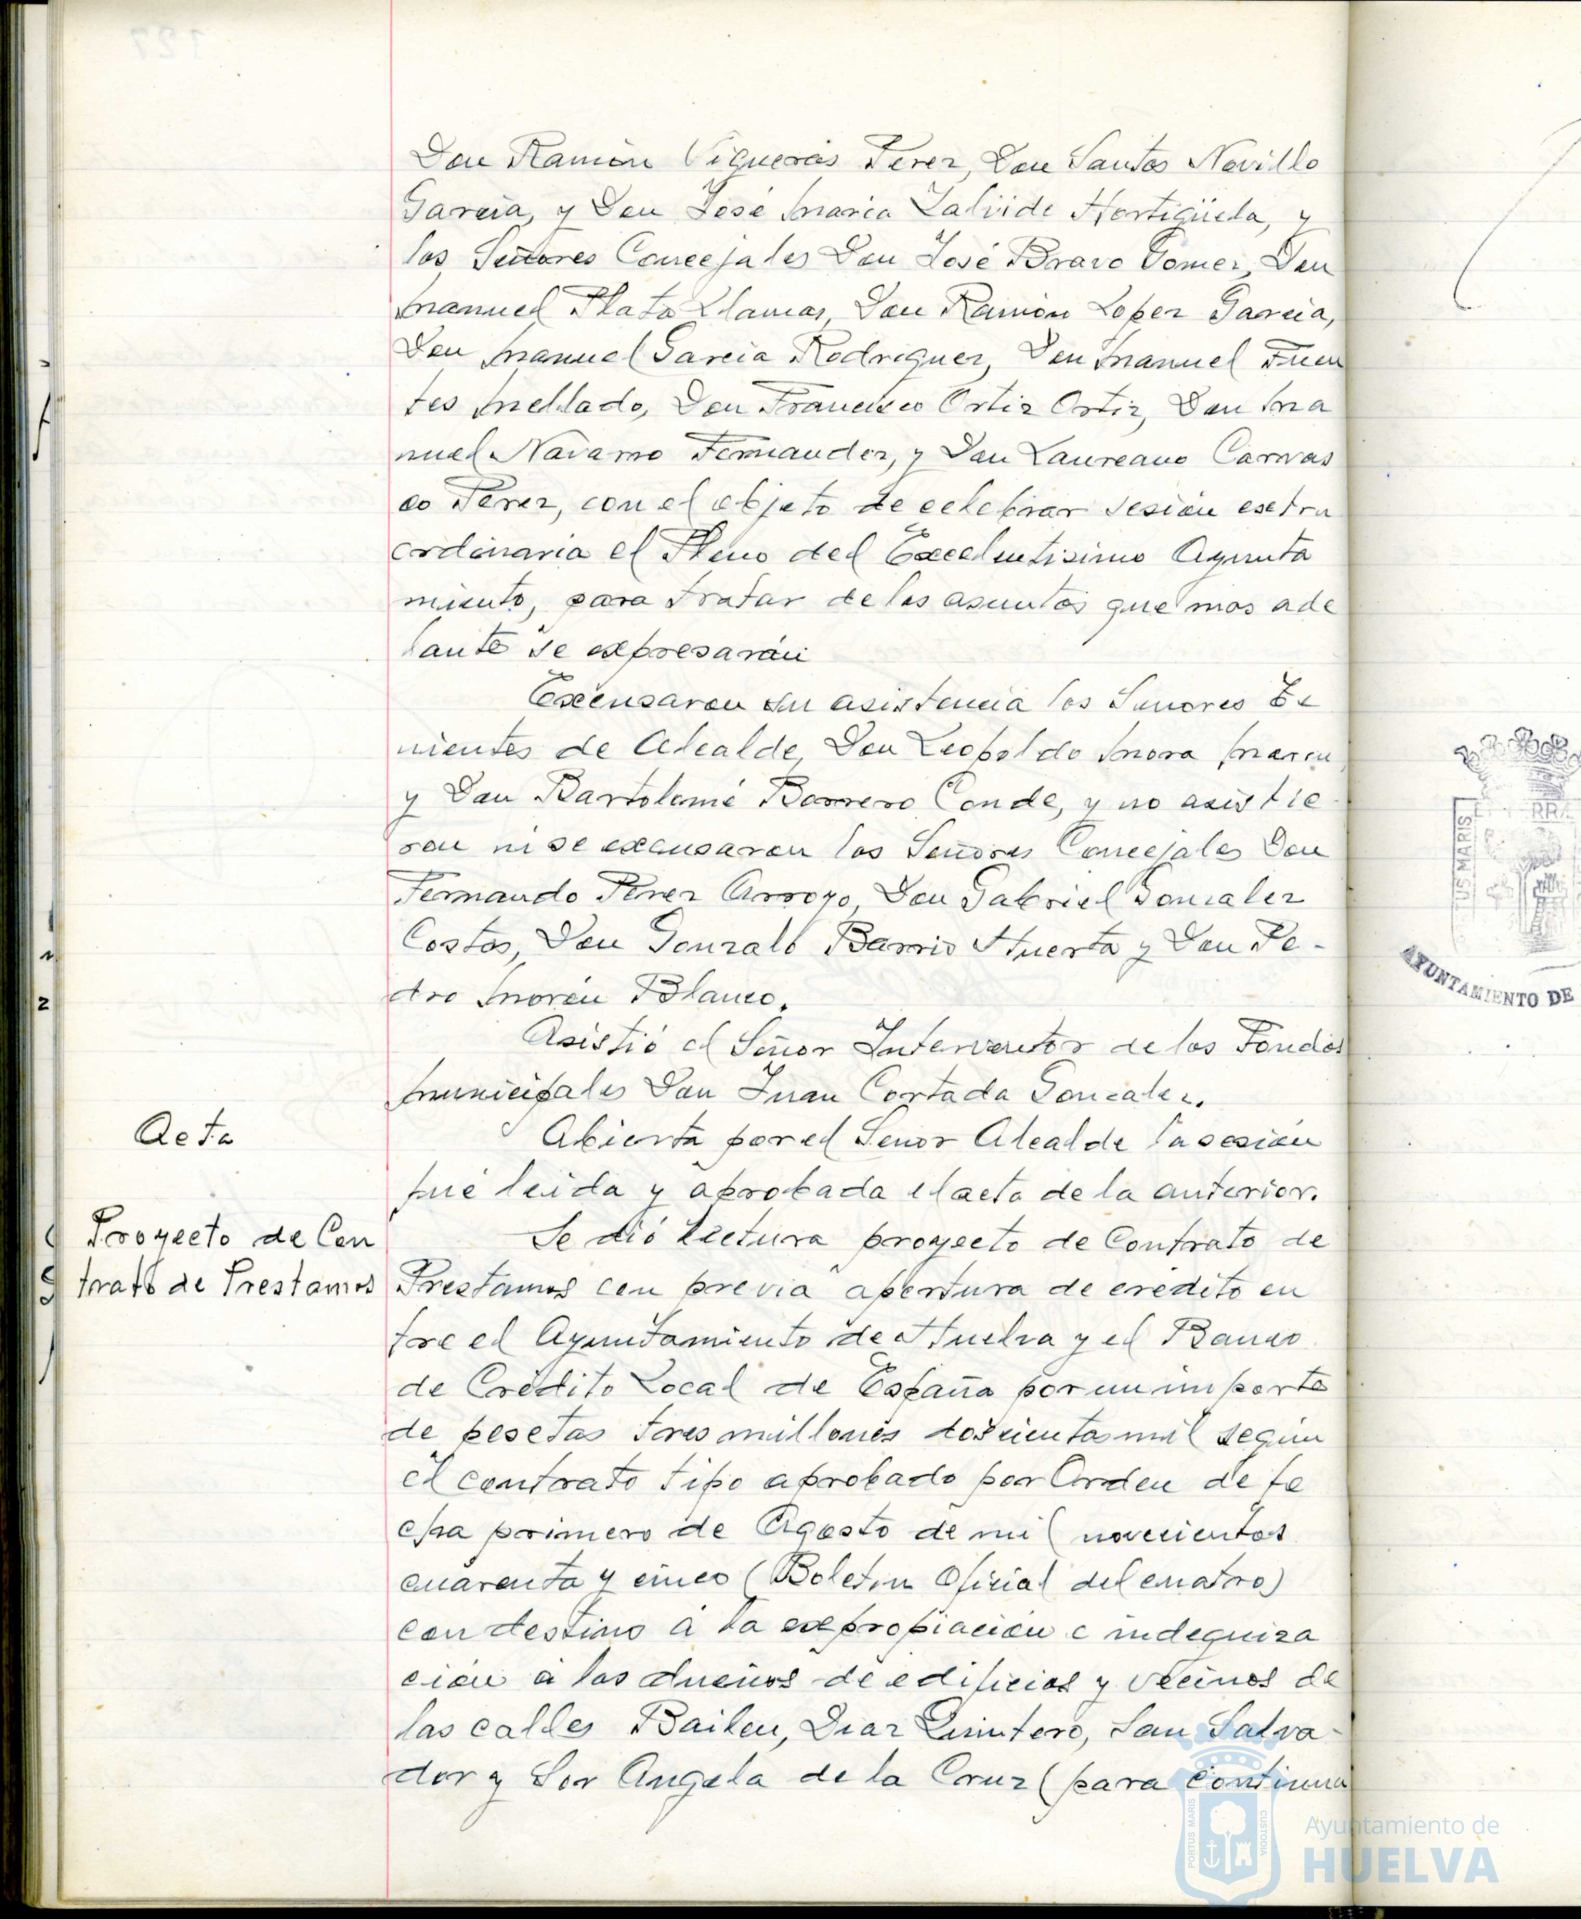 Don Ramón Vigueras Perez, Don Santos Novillo
Garcia, y Don José Maria Zalvide Hortigüela, y
los Señores Concejales Don José Bravo Gomez, Don
Manuel Plata Llamas, Don Ramón Lopez Garcia,
Don Manuel Garcia Rodriguez, Don Manuel Fuen
tes Mellado, Don Francisco Ortiz Ortiz, Don Ma
nuel Navarro Fernandez, y Don Laureano Carras
co Perez, con el objeto de celebrar sesión extra
ordinaria el Pleno del Excelentisimo Ayunta
miento, para tratar de los asuntos que mas ade
lante se expresarán
Excusaron su asistencia los Señores Te
nientes de Alcalde, Don Leopoldo Mora Marin
y Don Bartolomé Borrero Conde, y no asistie-
ron ni se excusaron los Señores Concejales Don
Fernando Perez Arroyo, Don Gabriel Gonzalez
Costos, Don Gonzalo Barrio Huerta y Don Pe-
dro Morón Blanco.
Asistió el Señor Interventor de los Fondos
Municipales Don Juan Cortada Gonzalez.
Acta
Abierta por el Señor Alcalde la sesión
fué leida y aprobada el acta de la anterior.
Proyecto de Con
trato de Prestamos
Se dió lectura proyecto de Contrato de
Prestamos con previa apertura de crédito en
tre el Ayuntamiento de Huelva y el Banco
de Crédito Local de España por un importe
de pesetas tres millones doscientas mil según
el contrato tipo aprobado por Orden de fe
cha primero de Agosto de mil novecientos
cuarenta y cinco (Boletin Oficial del cuatro)
con destino á la expropiación e indegniza
ción á los dueños de edificios y vecinos de
las calles Bailen, Diaz Quintero, San Salva-
dor y Sor Angela de la Cruz (para continua
TUS MARIS
RRA
AYUNTAMIENTO DE
PORTUS MARIS
CUSTODIA
Ayuntamiento de
HUELVA